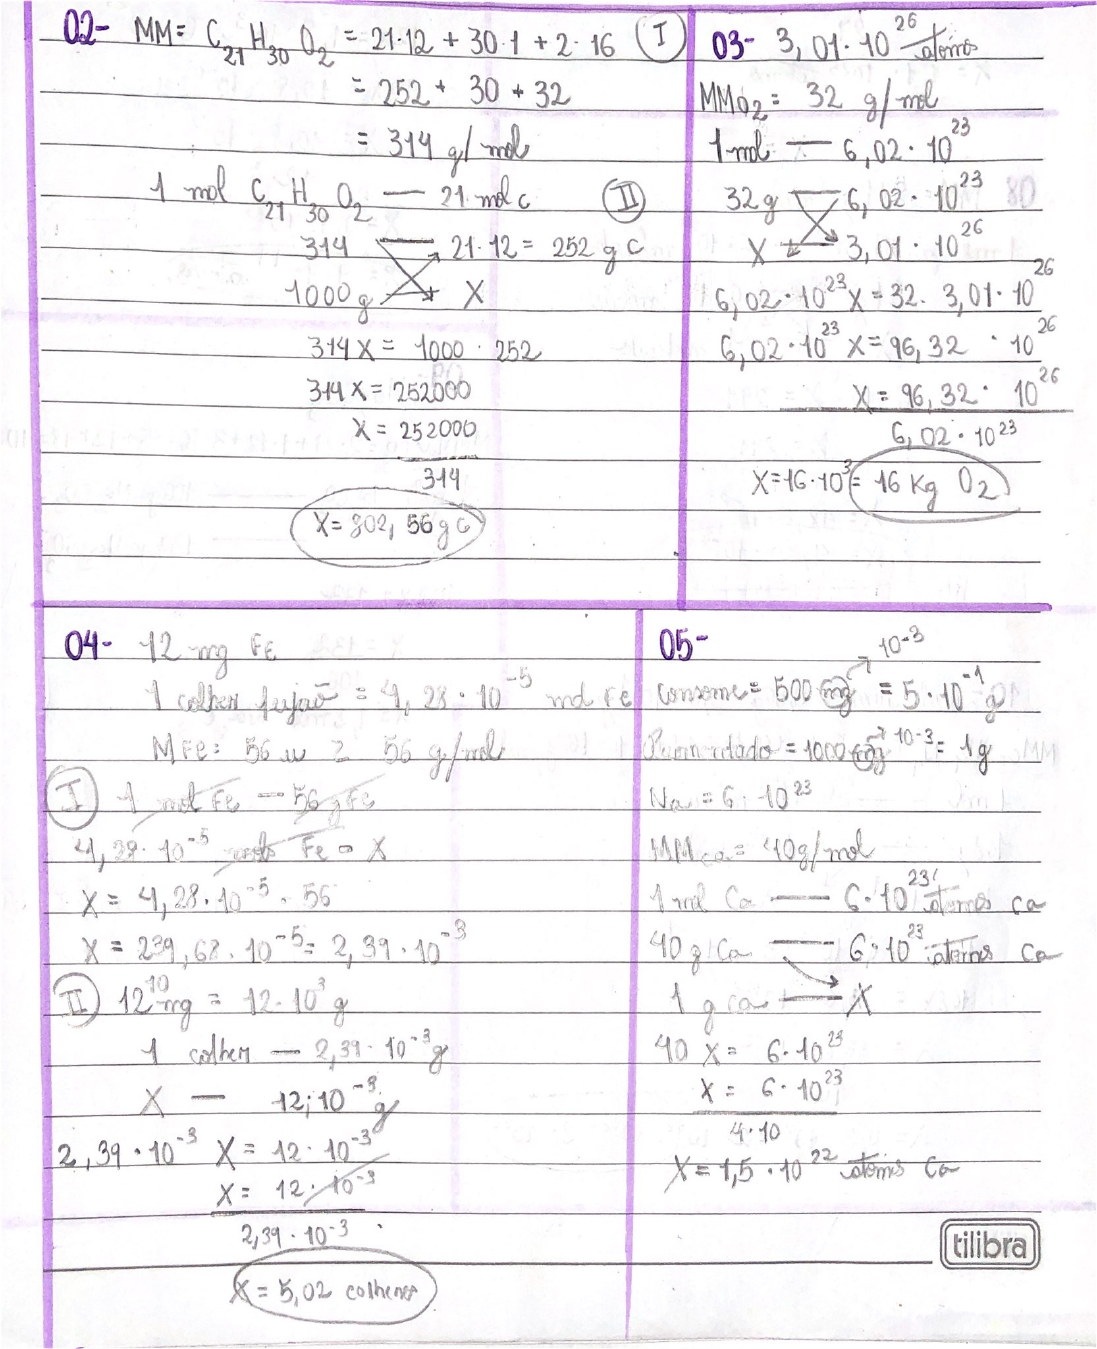 02- MM = C21 H30 O2 = 21·12 + 30·1 + 2·16 (I)
= 252 + 30 + 32
= 314 g/mol
1 mol C21 H30 O2 — 21 mol c (II)
314 — 21·12 = 252 g c
1000 g — X
314 X = 1000 · 252
314 X = 252000
X = 252000
314
X = 802, 56 g c
03- 3, 01·10^26 átomos
MMO2 = 32 g/mol
1 mol — 6, 02·10^23
32 g — 6, 02·10^23
X — 3, 01·10^26
6, 02·10^23 X = 32. 3, 01·10^26
6, 02·10^23 X = 96, 32 · 10^26
X = 96, 32 · 10^26
6, 02·10^23
X = 16·10^3 = 16 Kg O2
04- 12 mg Fe
1 colher feijão = 4, 28·10^-5 mol Fe
M Fe: 56 u = 56 g/mol
(I) 1 mol Fe — 56 g Fe
4, 28·10^-5 mols Fe — X
X = 4, 28·10^-5 · 56
X = 239, 68·10^-5 = 2, 39·10^-3
(II) 12 mg = 12·10^3 g
1 colher — 2, 39·10^-3 g
X — 12·10^-3 g
2, 39·10^-3 X = 12·10^-3
X = 12·10^-3
2, 39·10^-3
X = 5, 02 colheres
05-
10^-3
consome = 500 mg = 5·10^-1 g
Recomendado = 1000 mg 10^-3 = 1 g
Na = 6·10^23
MMca = 40 g/mol
1 mol Ca — 6·10^23 átomos ca
40 g Ca — 6·10^23 átomos Ca
1 g ca — X
40 X = 6·10^23
X = 6·10^23
4·10
X = 1, 5·10^22 átomos Ca
tilibra